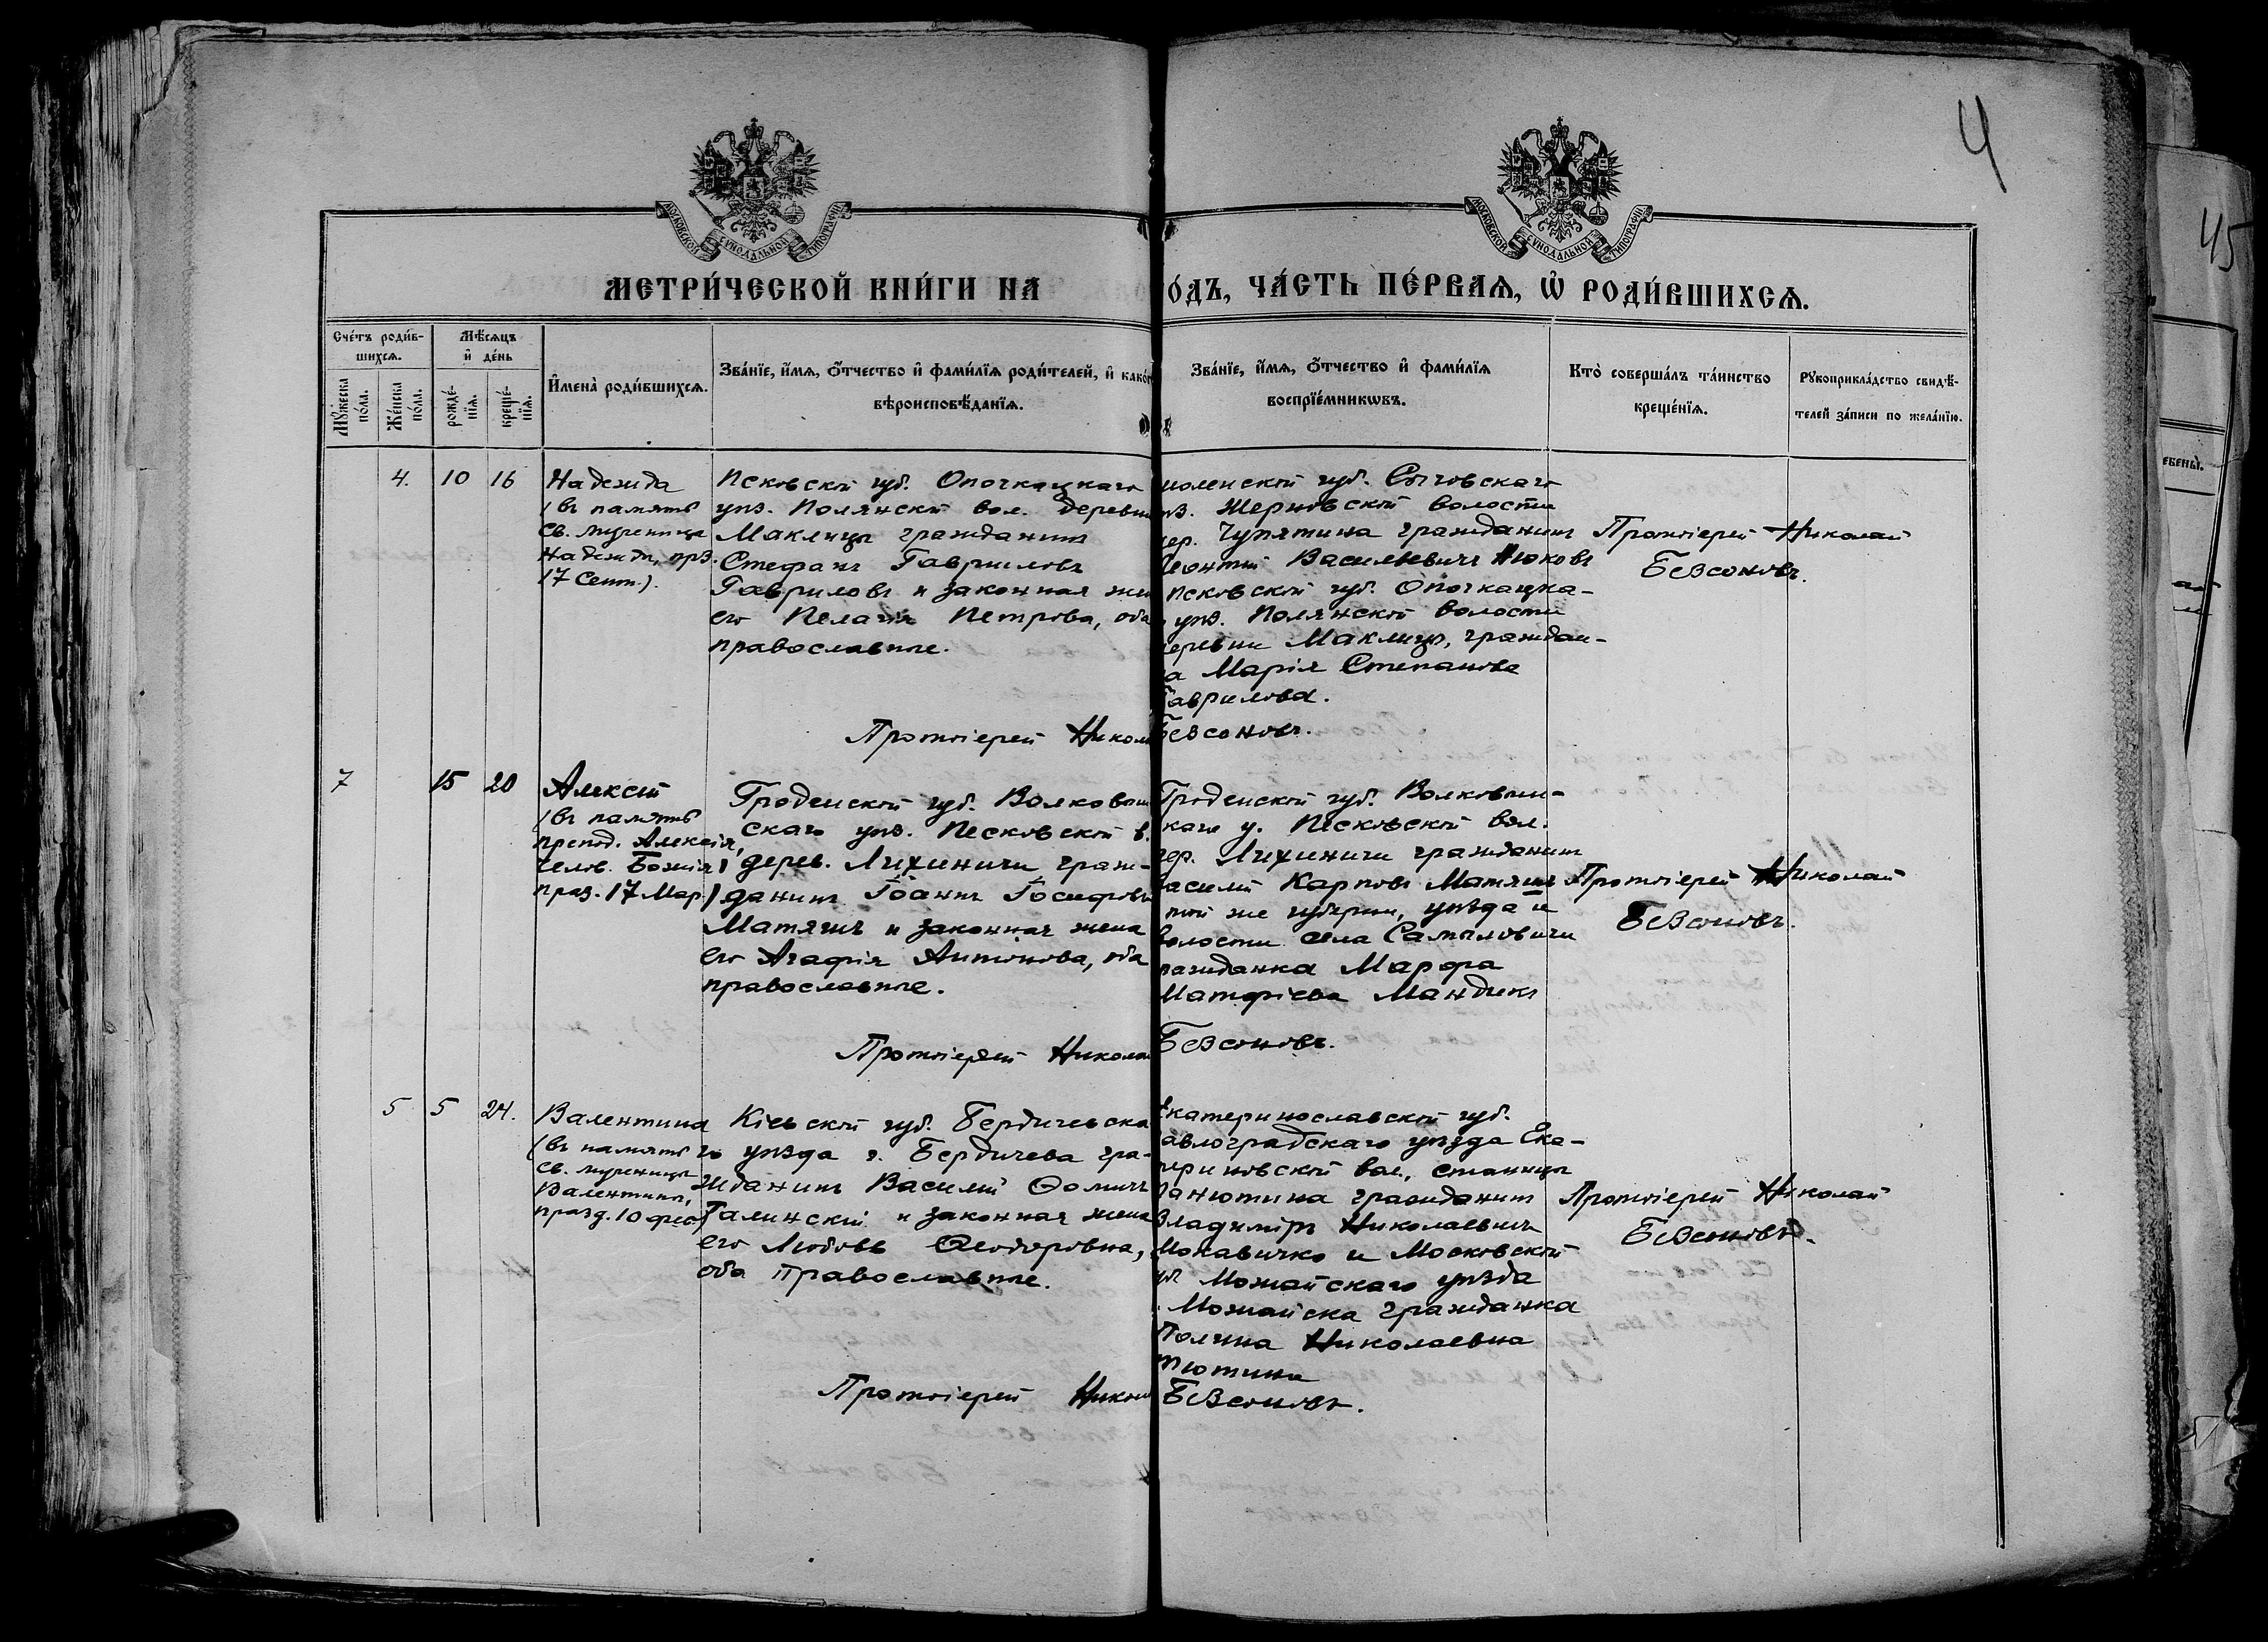 4
45
МОСКОВСКОЙ СѴНОДАЛЬНОЙ ТИПОГРАФІИ
МОСКОВСКОЙ СѴНОДАЛЬНОЙ ТИПОГРАФІИ
МЕТРИ́ЧЕСКОЙ КНИ́ГИ НА
О́ДЪ, ЧА́СТЬ ПЕ́РВАѦ, Ѡ҆ РОДИ́ВШИХСѦ.
Сче́тъ роди́в-
шихсѧ.
Мꙋ́жеска
по́ла.
Же́нска
по́ла.
Мѣ́сѧцъ
и҆ де́нь
рожде́-
нїѧ.
креще́-
нїѧ.
И҆мена̀ роди́вшихсѧ.
Зва́нїе, и҆́мѧ, ѻ҆́тчество и҆ фами́лїѧ роди́телей, и҆ како́г
вѣроисповѣ́данїѧ.
Зва́нїе, и҆́мѧ, ѻ҆́тчество и҆ фами́лїѧ
воспрїе́мникѡвъ.
Кто̀ соверша́лъ та́инство
креще́нїѧ.
Рꙋкоприкла́дство свидѣ́-
телей за́писи по жела́нїю.
4. 10 16
Надежда
(въ память
св. мученицы
Надежды, прз.
17 Сент.).
Псковской губ. Опочкацкаго
уѣз. Полянской вол. деревни
Маклицы гражданинъ
Стефанъ Гавриловъ
Гавриловъ и законная жен
его Пелагія Петрова, оба
православные.
моленской губ. Сычовскаго
ѣз. Жерновской волости
ер. Чупятина гражданинъ
Леонтій Васильевичъ Нюковъ
Псковской губ. Опочкацка-
уѣз. Полянской волости
еревни Маклицы, граждан-
а Марія Степанова
Гаврилова.
Протоіерей Николай
Безсоновъ.
Протоіерей Никола
Безсоновъ.
7 15 20
Алексій
(въ память
препод. Алексія,
Челов. Божія
праз. 17 Мар.)
Гродненской губ. Волковыш
скаго уѣз. Песковской в.
дерев. Лихиничи граж-
данинъ Іоаннъ Іосифовъ
Матяшъ и законная жена
его Агафія Антонова, оба
православные.
Гродненской губ. Волковыш-
каго у. Песковской вол.
дер. Лихиничи гражданинъ
асилій Карповъ Матяшъ
той же губерніи, уѣзда и
волости села Самыловичи
ражданка Марфа
Матфіева Мандикъ
Протоіерей Николай
Безсоновъ.
Протоіерей Николай
Безсоновъ.
5 5 24.
Валентина
(въ память
св. мученицы
Валентины,
празд. 10 фев.)
Кіевской губ. Бердичевска
го уѣзда г. Бердичева гра-
жданинъ Василій Ѳомичъ
Галинскій и законная жена
его Любовь Ѳеодоровна,
оба православные.
Екатеринославской губ.
авлоградскаго уѣзда Ека-
териновской вол., станицы
Панютина гражданинъ
Владиміръ Николаевичъ
Мокавичко и Московской
уб Можайскаго уѣзда
. Можайска гражданка
Полина Николаевна
Тютина
Протоіерей Николай
Безсоновъ.
Протоіерей Никола
Безсоновъ.